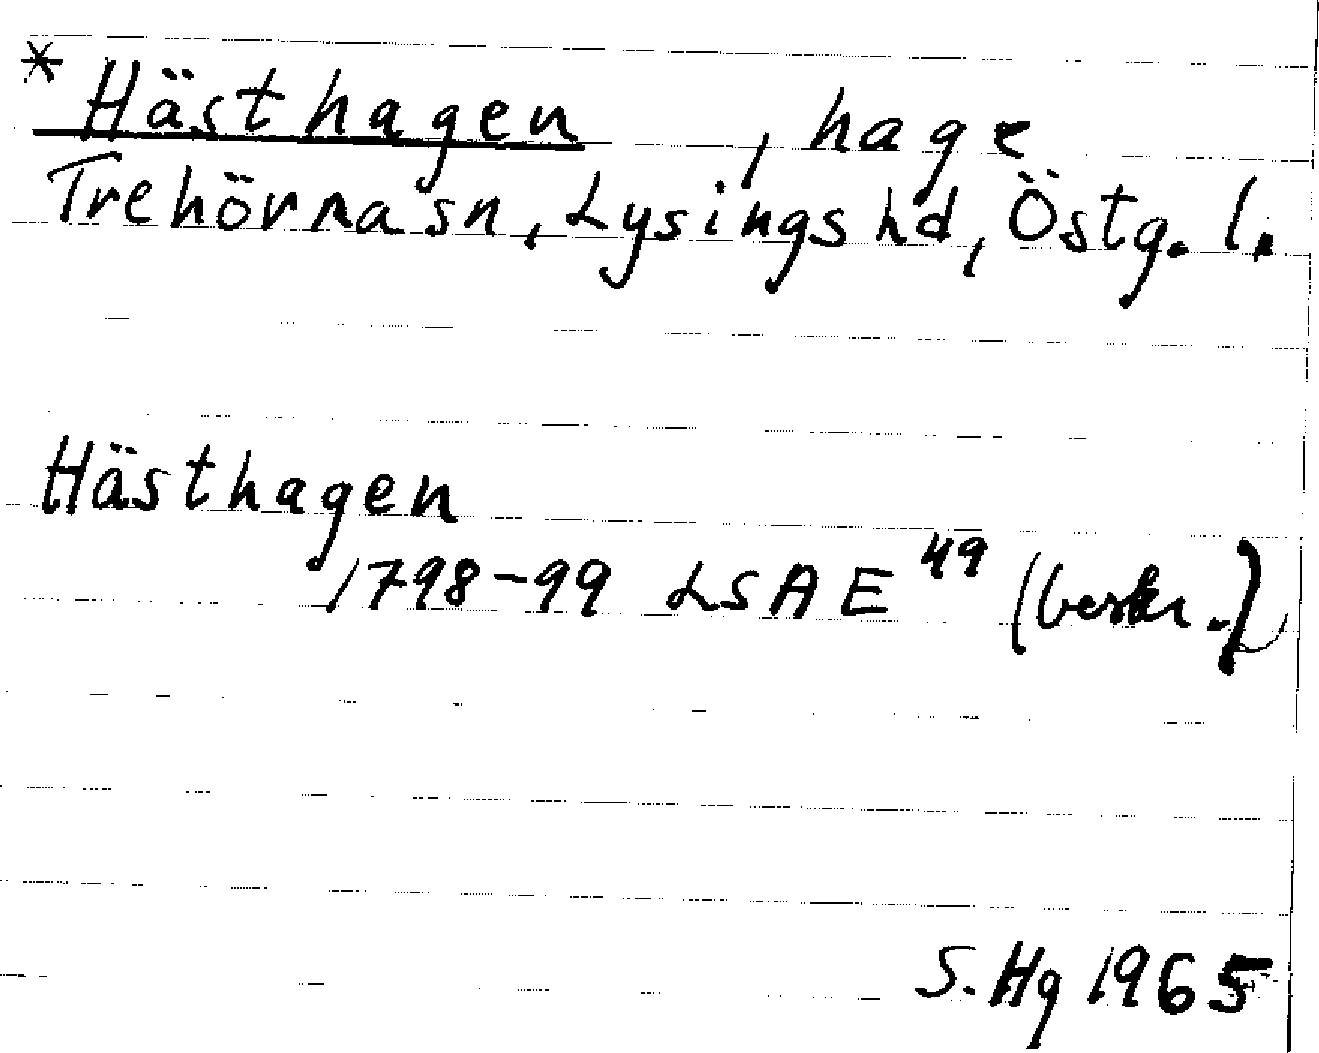 *Hästhagen, hage
Trehörna sn, Lysings hd, Östg. l.
Hästhagen
1798-99 LSA E 49 (beskr.)
S. Hg 1965